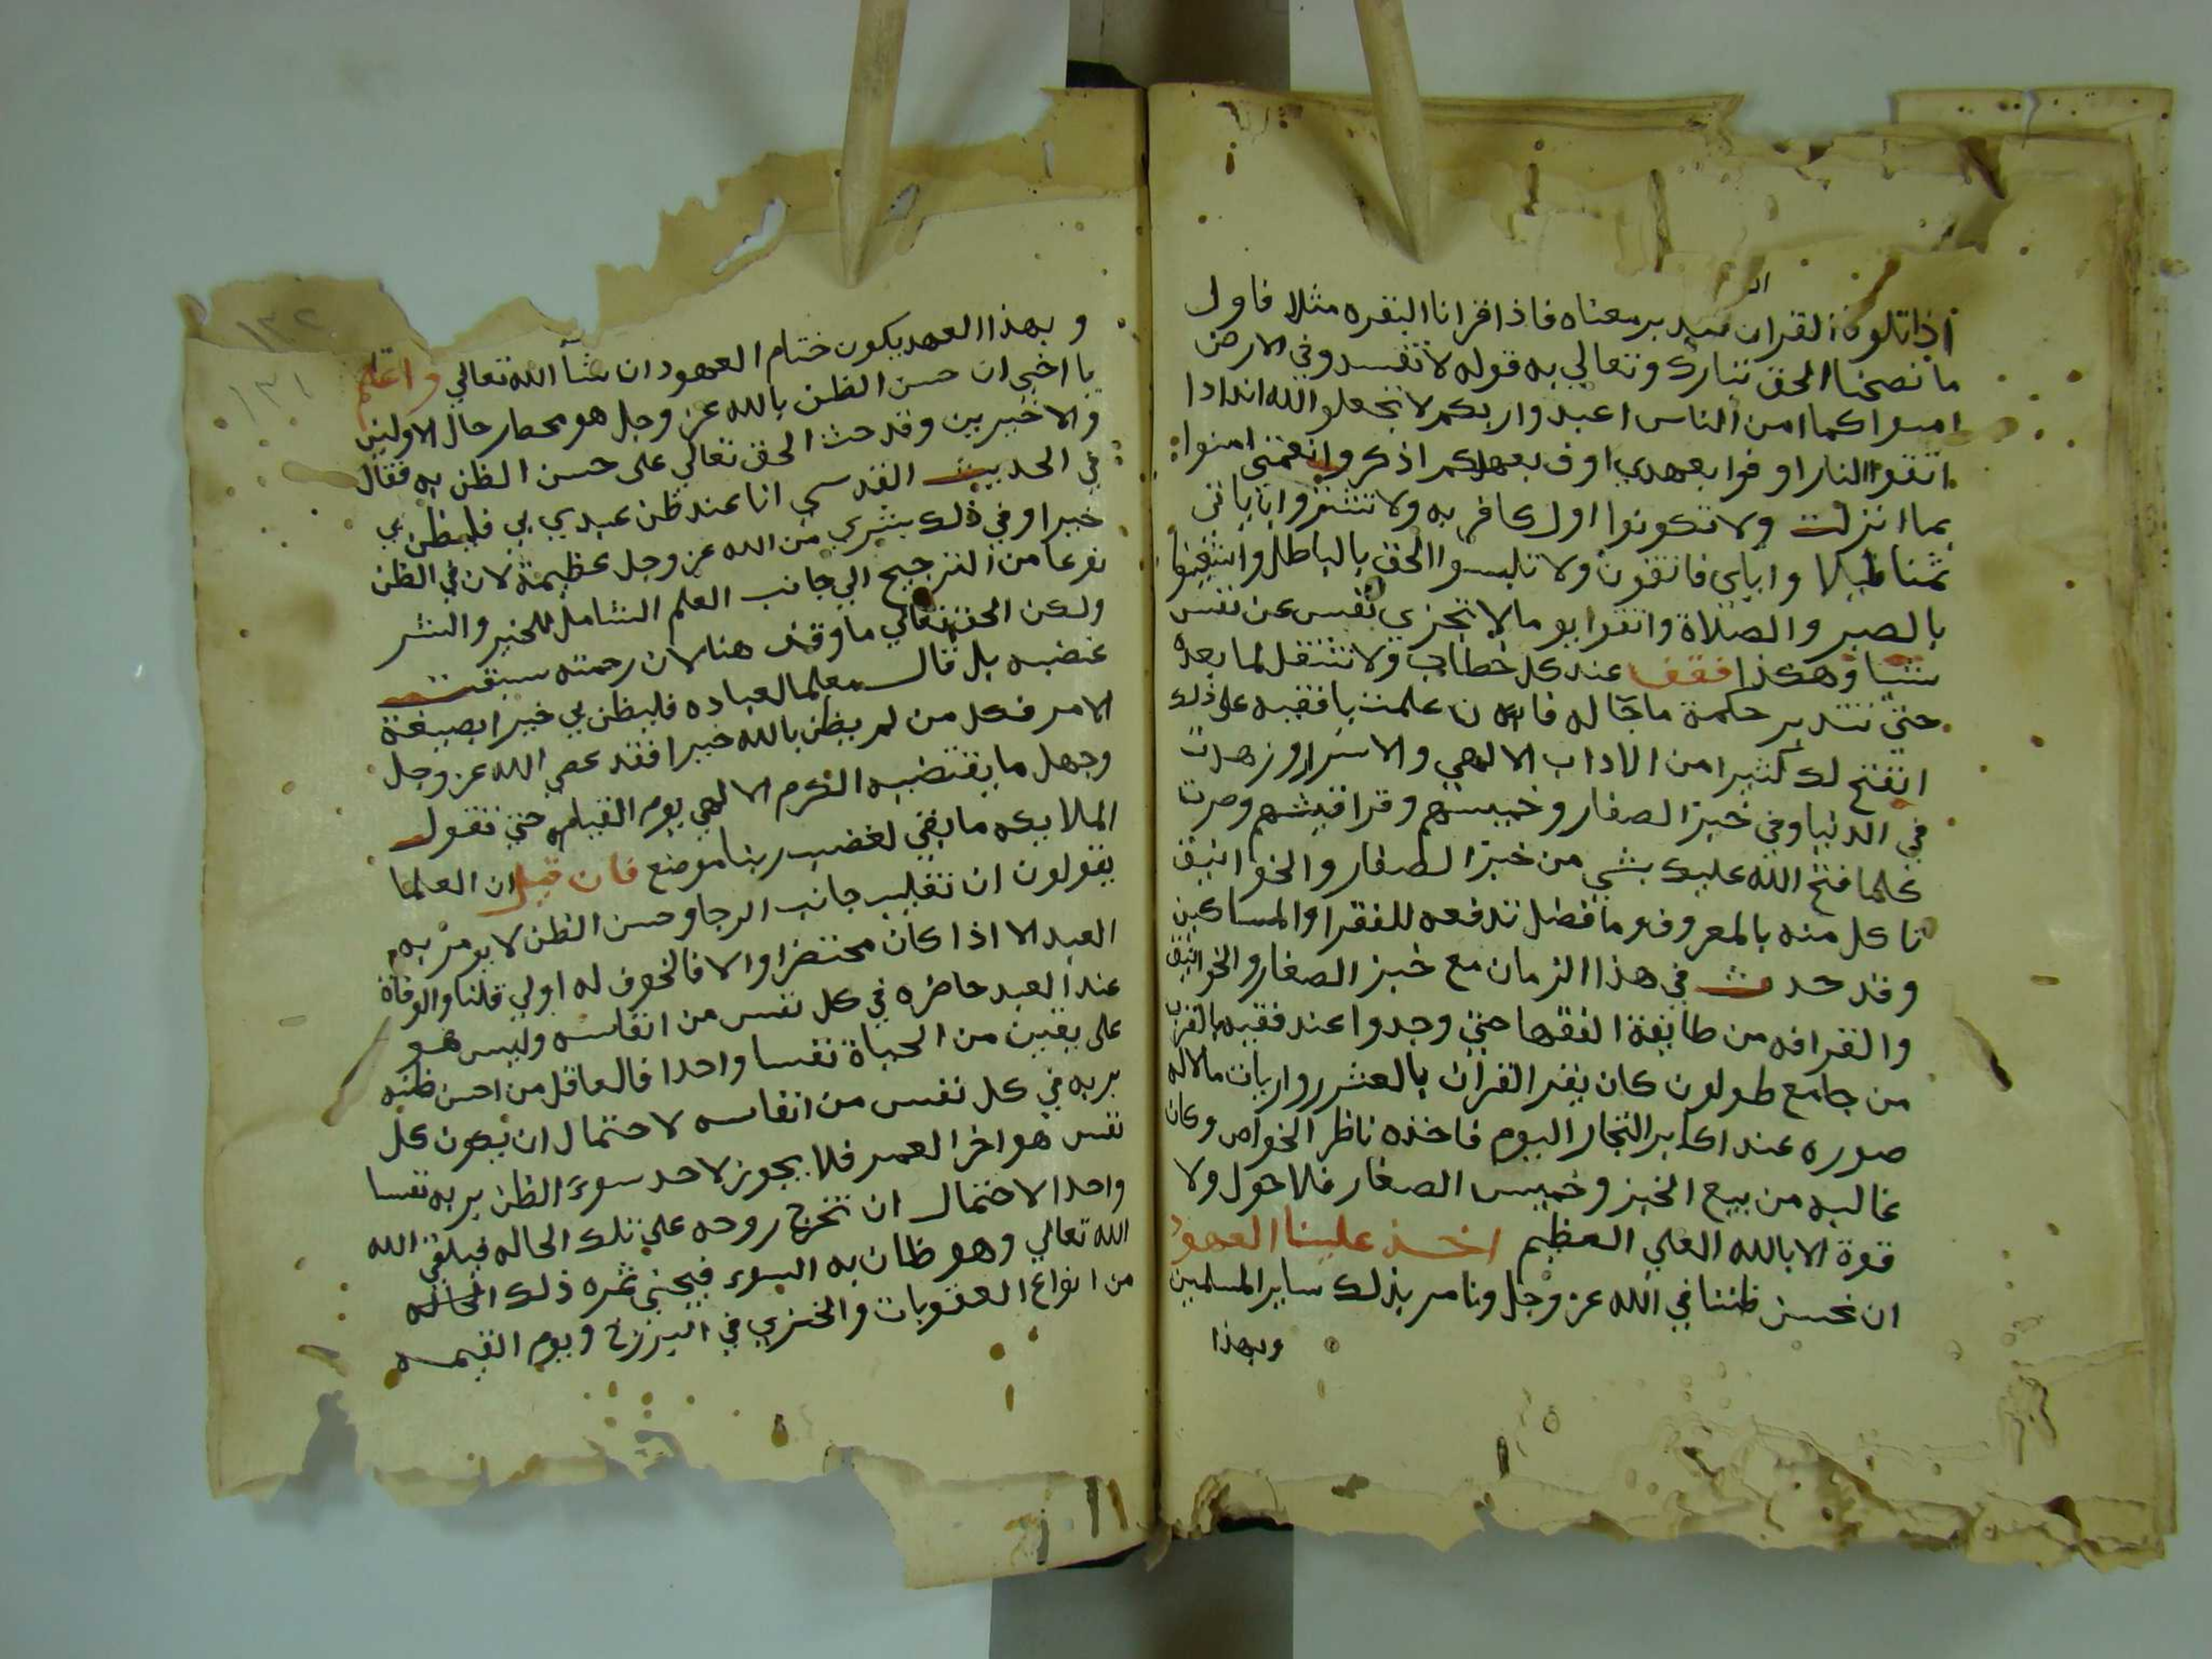 اذا تلونا القران نتدبر معناه فاذا قرانا البقره مثلا فاول
ما نصحنا الحق تبارك وتعالي به قوله لا تفسدوا في الارض
امنوا كما امن الناس اعبدوا ربكم لا تجعلوا لله اندادا
اتقوا النار اوفوا بعهدي اوف بعهدكم اذكروا نعمتي امنوا
بما انزلت ولا تكونوا اول كافر به ولا تشتروا باياتي
ثمنا قليلا واياي فاتقون ولا تلبسوا الحق بالباطل واستعينوا
بالصبر والصلاة واتقوا يوما لا تجزي نفس عن نفس
شيا وهكذا فقف عند كل خطاب ولا تنتقل لما بعده
حتي تتدبر حكمة ما جا له فان علمت يا فقيه علي ذلك
انفتح لك كثيرا من الاداب الالهي والاسرار وزهدت
في الدنيا وفي خبز الصغار وخميستهم وقراقيشهم وصرت
كلما فتح الله عليك بشي من خبز الصغار والخوانيق
تاكل منه بالمعروف وما فضل تدفعه للفقرا والمساكين
وقد حدث في هذا الزمان مع خبز الصغار والخوانيق
والقرافه من طايفة الفقها حتي وجدوا عند فقيه بالقرب
من جامع طولون كان يقر القران بالعشر روايات مالا له
صوره عند اكابر التجار اليوم فاخذه ناظر الخواص وكان
غالبه من بيع الخبز وخميس الصغار فلا حول ولا
قوة الا بالله العلي العظيم اخذ علينا العهود
ان نحسن ظننا في الله عز وجل ونامر بذلك ساير المسلمين
وبهذا
١٣٢
١٣١
وبهذا العهد يكون ختام العهود ان شآ الله تعالي واعلم
يا اخي ان حسن الظن بالله عز وجل هو محط رحال الاولين
والاخيرين وقد حث الحق تعالي على حسن الظن به فقال
في الحديث القدسي انا عند ظن عبدي بي فليظن بي
خيرا وفي ذلك بشري من الله عز وجل عظيمة لان في الظن
نوعا من الترجيح الي جانب العلم الشامل للخير والشر
ولكن الحق تعالي ما وقف هنا لان رحمته سبقت
غضبه بل قال معلما لعباده فليظن بي خيرا بصيغة
الامر فكل من لم يظن بالله خيرا فقد عصي الله عز وجل
وجهل ما يقتضيه الكرم الالهي يوم القيامه حتي تقول
الملايكه ما بقي لغضب ربنا موضع فان قيل ان العلما
يقولون ان تغليب جانب الرجا وحسن الظن لا يومر به
العبد الا اذا كان محتضرا والا فالخوف له اولي قلنا والوفاة
عند العبد حاضره في كل نفس من انفاسه وليس هو
على يقين من الحياة نفسا واحدا فالعاقل من احسن ظنه
بربه في كل نفس من انفاسه لاحتمال ان يكون كل
نفس هو اخر العمر فلا يجوز لاحد سوء الظن بربه نفسا
واحدا لاحتمال ان تخرج روحه علي تلك الحاله فيلقي الله
الله تعالي وهو ظان به السوء فيجني ثمره ذلك الحاله
من انواع العقوبات والخزي في البرزخ ويوم القيمه